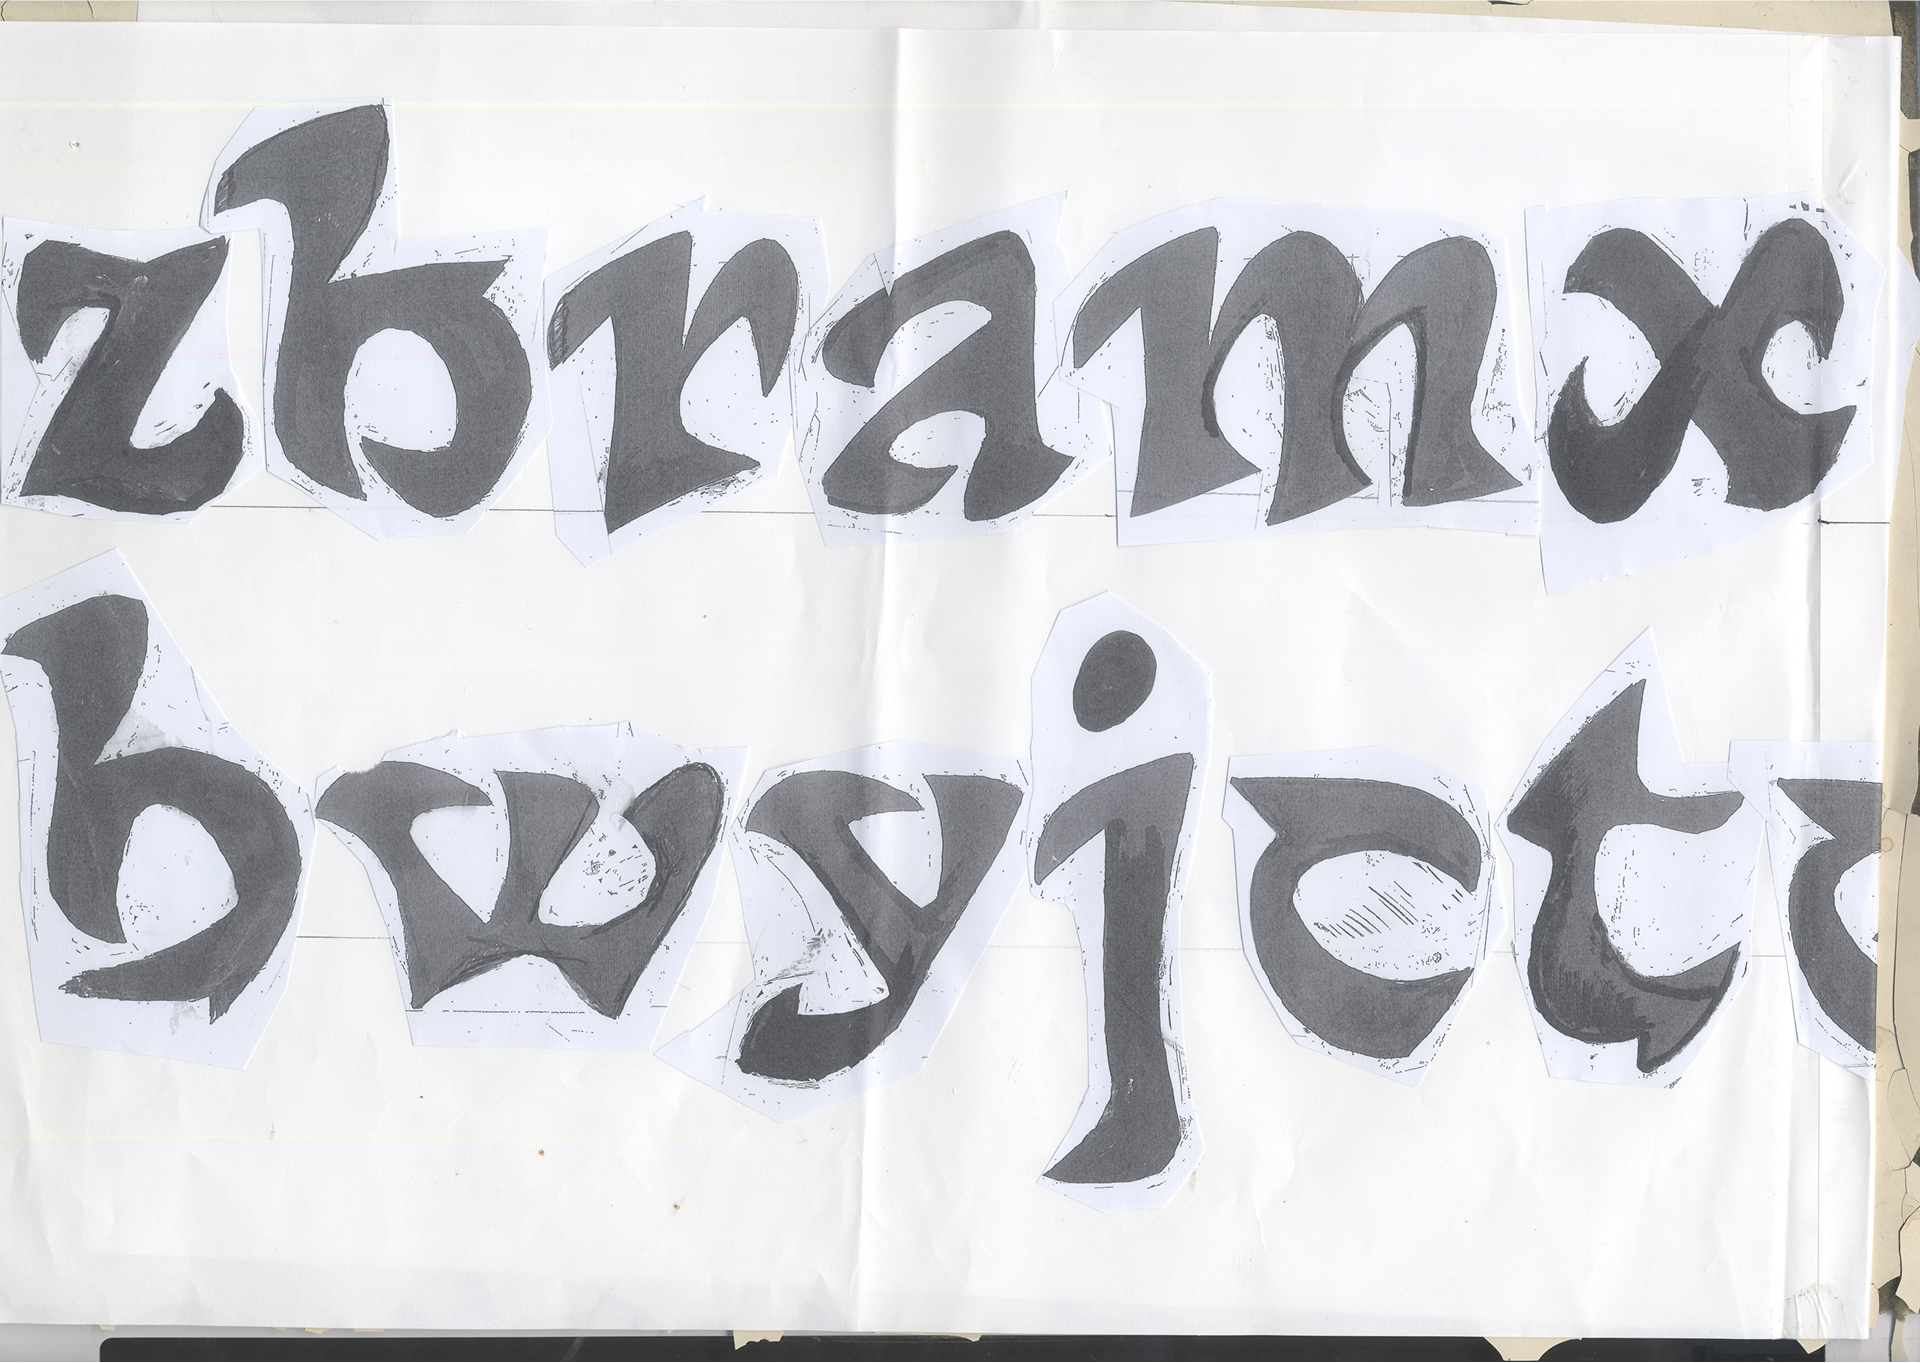 zbramx
bwyjct